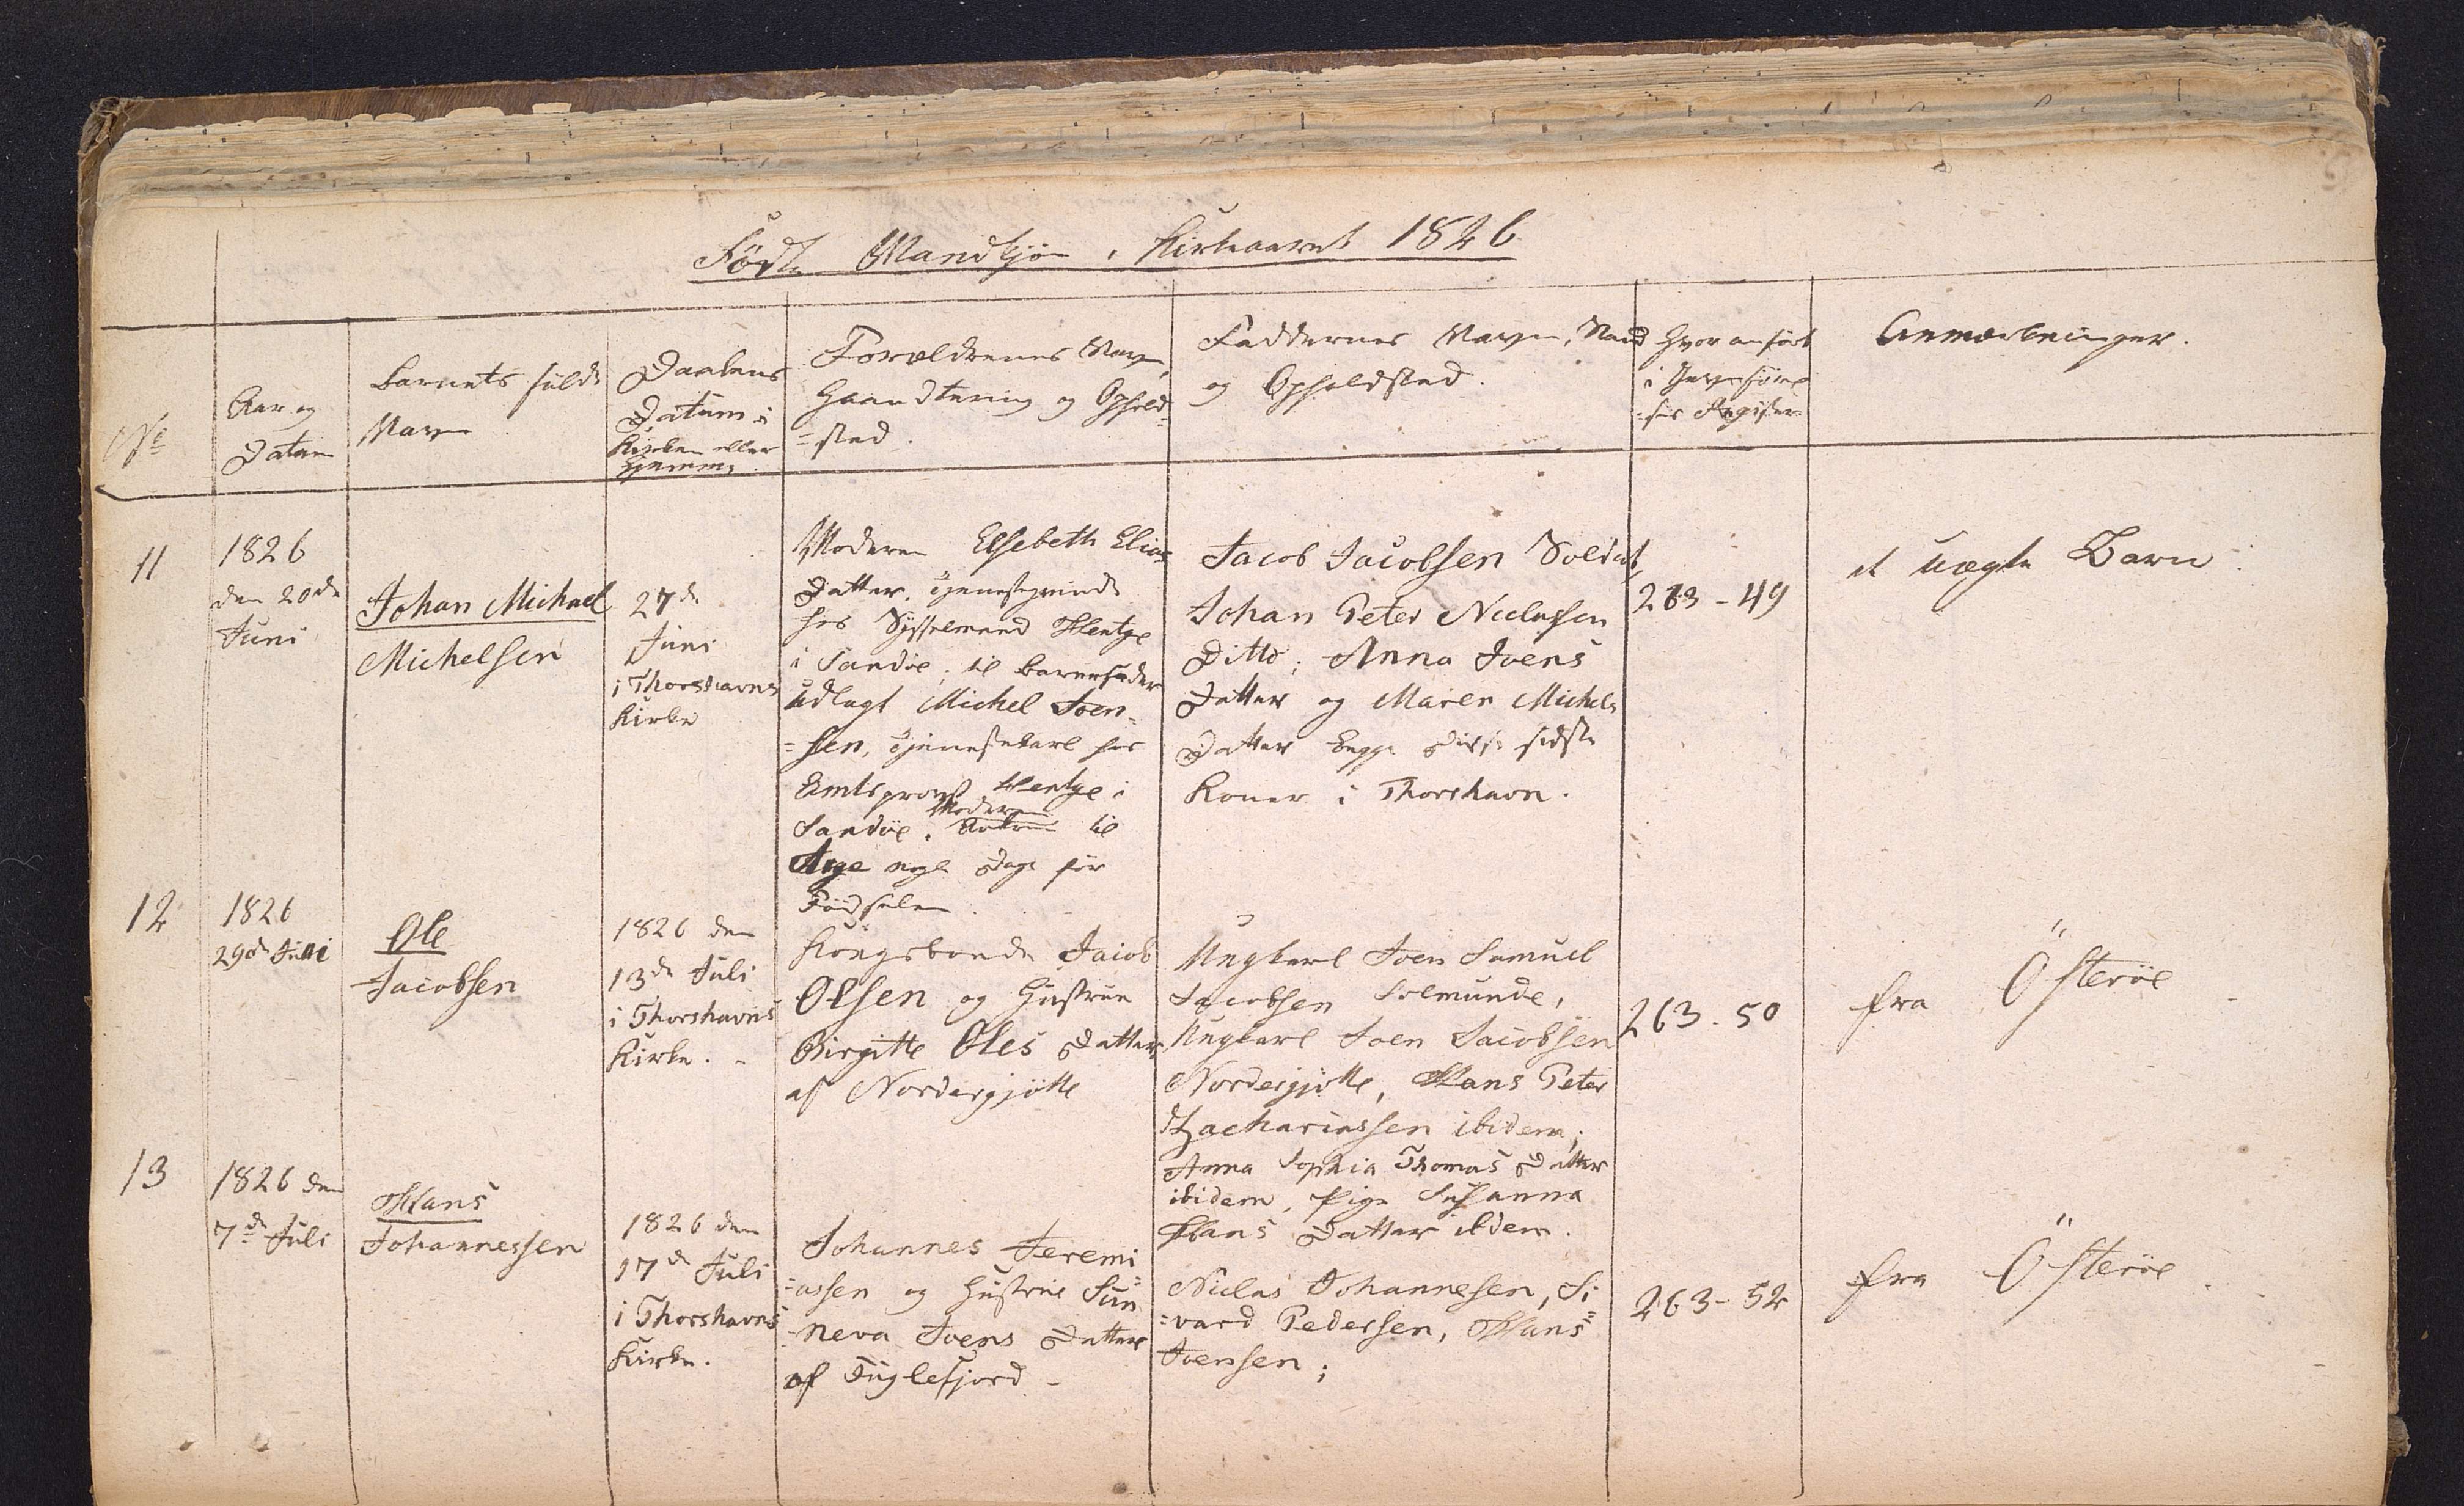 Födte Mandkjön i Kirkeaaret 1826
No
Aar og
Datum
Barnets fulde
Navn
Daabens
Datum i
Kirken eller
Hjemme
Forældrenes Navn,
Haandtering og Ophold-
=sted.
Faddernes Navn, Stand
og Opholdsted.
Hvor anfört
i Jevnförel
=ses Register
Anmærkninger.
11
1826
den 20de
Juni
Johan Michael
Michelsen
27de
Juni
i Thorshavns
Kirke
Moderen Elsebeth Elias
Datter, Tjenestepige
hos Sysselmand Hentze
i Sandöe; til Barnefader
udlagt Michel Joen-
=sen, Tjenestekarl hos
Amtsprovst Hentze i
Sandöe. Moderen til
nogle Dage för
Födselen.
Jacob Jacobsen Soldat,
Johan Peter Niclassen
Ditto; Anna Joens
Datter og Maren Michels
Datter begge disse sidste
Koner i Thorshavn.
263-49
et uægte Barn
12
1826
29de Juni
Ole
Jacobsen
1826 den
13de Juli
i Thorshavns
Kirke.
Kongsbonde Jacob
Olsen og Hustrue
Birgitte Oles Datter
af Nordergjötte
Ungkarl Joen Samuel
Jacobsen Solmunde,
Ungkarl Joen Jacobsen
Nordergjötte, Hans Peter
Zachariassen ibidem;
Anna Sophia Thomas Datter
ibidem, Pige Susanna
Hans Datter ibdem.
263-50
fra Österöe
13
1826 den
7de Juli
Hans
Johannessen
1826 den
17de Juli
i Thorshavns
Kirke.
Johannes Jeremi
=assen og Hustrue Sun
=neva Joens Datter
af Fuglefjord
Niclas Johannesen, Si
=vard Pedersen, Hans
Joensen;
263-52
fra Österöe